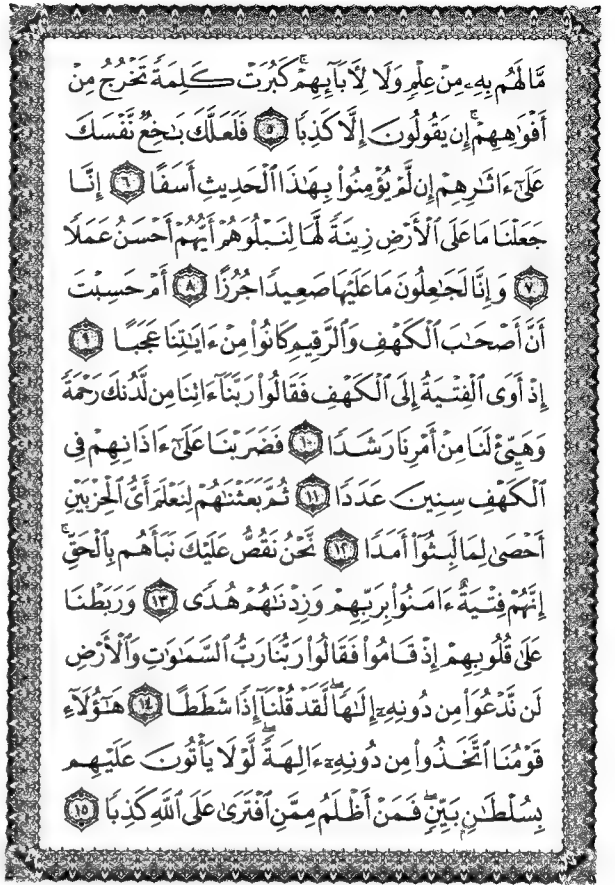 مَّا لَهُم بِهِۦ مِنْ عِلْمٍ وَلَا لِأَبَآئِهِمْ ۚ كَبُرَتْ كَلِمَةً تَخْرُجُ مِنْ
أَفْوَٰهِهِمْ ۚ إِن يَقُولُونَ إِلَّا كَذِبًا ٥ فَلَعَلَّكَ بَٰخِعٌ نَّفْسَكَ
عَلَىٰٓ ءَاثَٰرِهِمْ إِن لَّمْ يُؤْمِنُوا۟ بِهَٰذَا ٱلْحَدِيثِ أَسَفًا ٦ إِنَّا
جَعَلْنَا مَا عَلَى ٱلْأَرْضِ زِينَةً لَّهَا لِنَبْلُوَهُمْ أَيُّهُمْ أَحْسَنُ عَمَلًا
٧ وَإِنَّا لَجَٰعِلُونَ مَا عَلَيْهَا صَعِيدًا جُرُزًا ٨ أَمْ حَسِبْتَ
أَنَّ أَصْحَٰبَ ٱلْكَهْفِ وَٱلرَّقِيمِ كَانُوا۟ مِنْ ءَايَٰتِنَا عَجَبًا ٩
إِذْ أَوَى ٱلْفِتْيَةُ إِلَى ٱلْكَهْفِ فَقَالُوا۟ رَبَّنَآ ءَاتِنَا مِن لَّدُنكَ رَحْمَةً
وَهَيِّئْ لَنَا مِنْ أَمْرِنَا رَشَدًا ١٠ فَضَرَبْنَا عَلَىٰٓ ءَاذَانِهِمْ فِى
ٱلْكَهْفِ سِنِينَ عَدَدًا ١١ ثُمَّ بَعَثْنَٰهُمْ لِنَعْلَمَ أَىُّ ٱلْحِزْبَيْنِ
أَحْصَىٰ لِمَا لَبِثُوٓا۟ أَمَدًا ١٢ نَّحْنُ نَقُصُّ عَلَيْكَ نَبَأَهُم بِٱلْحَقِّ ۚ
إِنَّهُمْ فِتْيَةٌ ءَامَنُوا۟ بِرَبِّهِمْ وَزِدْنَٰهُمْ هُدًى ١٣ وَرَبَطْنَا
عَلَىٰ قُلُوبِهِمْ إِذْ قَامُوا۟ فَقَالُوا۟ رَبُّنَا رَبُّ ٱلسَّمَٰوَٰتِ وَٱلْأَرْضِ
لَن نَّدْعُوَا۟ مِن دُونِهِۦٓ إِلَٰهًا ۖ لَّقَدْ قُلْنَآ إِذًا شَطَطًا ١٤ هَٰٓؤُلَآءِ
قَوْمُنَا ٱتَّخَذُوا۟ مِن دُونِهِۦٓ ءَالِهَةً ۖ لَّوْلَا يَأْتُونَ عَلَيْهِم
بِسُلْطَٰنٍۭ بَيِّنٍ ۖ فَمَنْ أَظْلَمُ مِمَّنِ ٱفْتَرَىٰ عَلَى ٱللَّهِ كَذِبًا ١٥